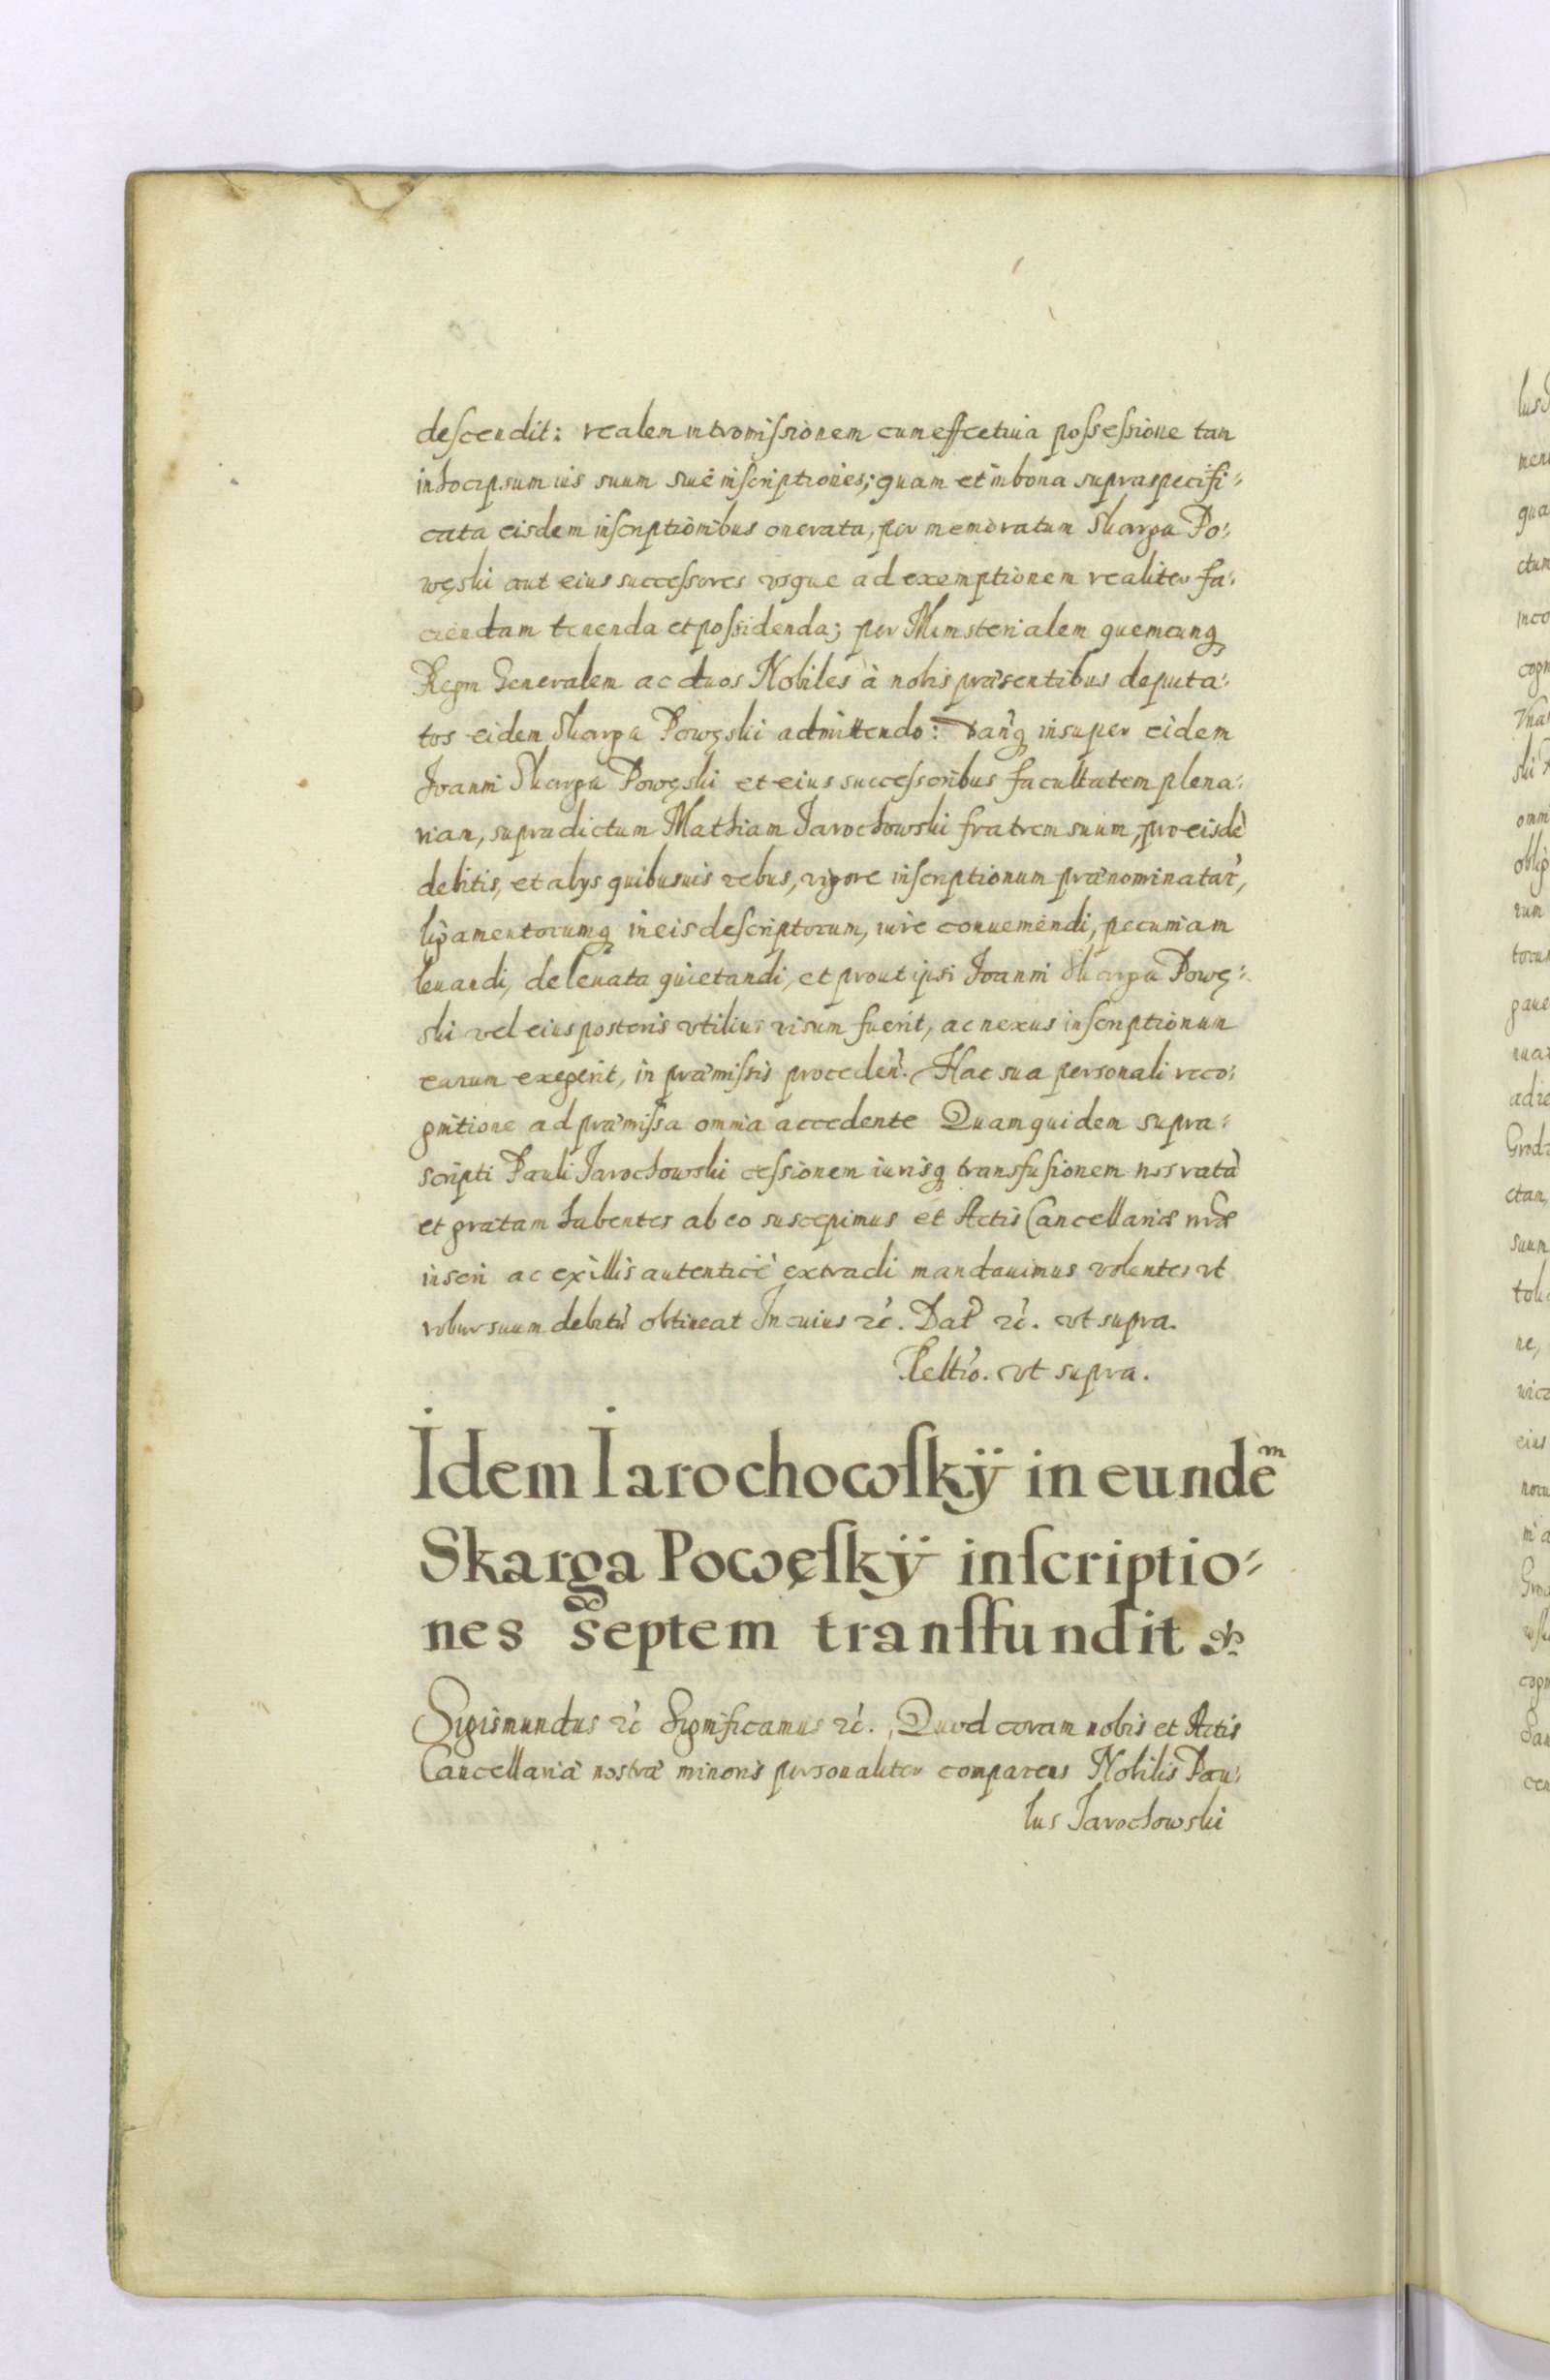 descendit: realem intromissionem cum effectiua possessione tam
in hoc ipsum ius suum siue inscriptiones; quam et in bona supraspecifi-
cata eisdem inscriptionibus onerata, per memoratum Skarga Po-
węski aut eius successores vsque ad exemptionem realiter fa-
ciendam tenenda et possidenda; per Ministerialem quemcunq
Regni Generalem ac duos Nobiles à nobis præsentibus deputa-
tos eidem Skarga Powęski admittendo: Danq insuper eidem
Ioanni Skarga Powęski et eius successoribus facultatem plena-
riam, supradictum Mathiam Iarochowski fratrem suum, pro eisdē
debitis, et alys quibusuis rebus, vigore inscriptionum prænominatar,
ligamentorumq in eis descriptorum, iure conueniendi, pecuniam
leuandi, de leuata quietandi, et prout ipsi Ioanni Skarga Powę-
ski vel eius posteris vtilius visum fuerit, ac nexus inscriptionum
earum exegerit, in præmissis proceden. Hac sua personali reco-
gnitione ad præmissa omnia accedente Quamquidem supra-
scripti Pauli Iarochowski cessionem iurisq transfusionem nos ratā
et gratam habentes ab eo suscepimus et Actis Cancellariæ nræ
inseri ac ex illis autenticè extradi mandauimus volentes vt
robur suum debitū obtineat In cuius rc. Dat rc. vt supra.
Reltio. vt supra.
Idem Iarochowſkÿ in eundēm
Skarga Powęſkÿ inſcriptio-
nes septem tranſfundit
Sigismundus rc Significamus rc. Quod coram nobis et Actis
Cancellariæ nostræ minoris personaliter comparens Nobilis Pau-
lus Iarochowski